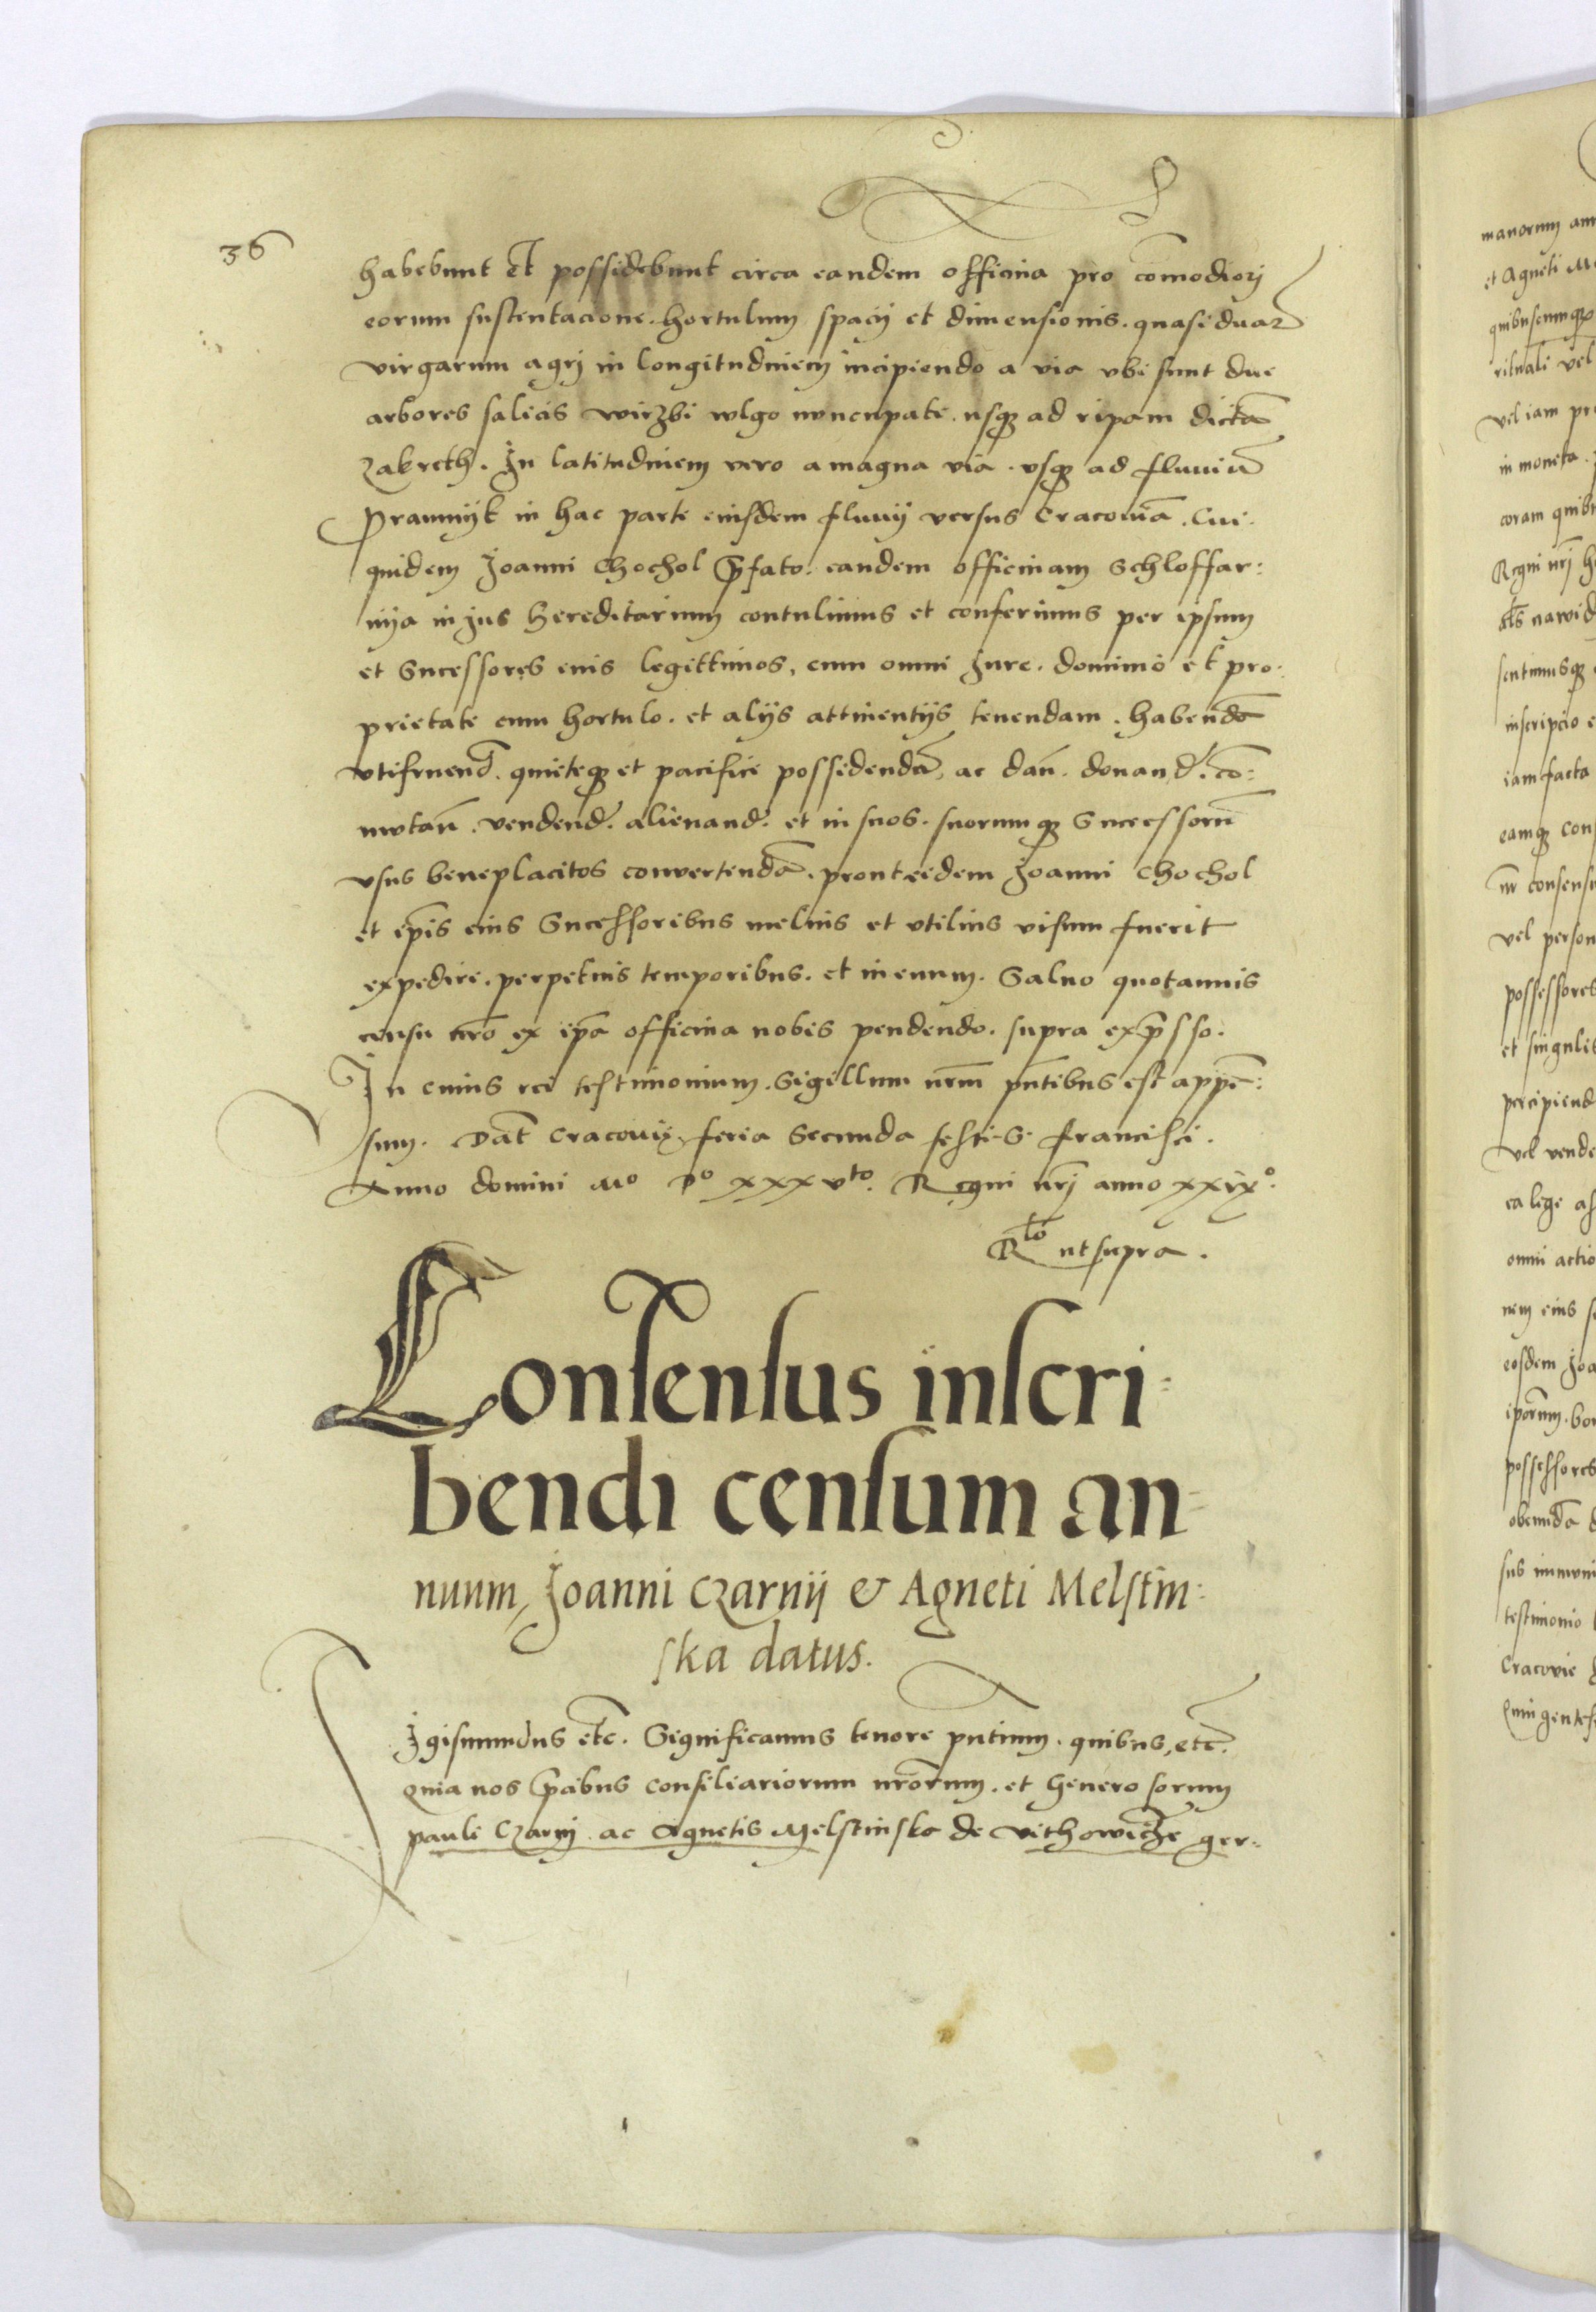 36
habebunt et possidebunt circa eandem officina pro com̄odiorj
eorum sustentacione. hortulum spacij et dimensionis. quasi duar
virgarum agrj in longitudinem incipiendo a via vbi sunt due
arbores salicis wirzbi wlgo nuncupate. usq ad ripam dictā
zakreth. In latitudinem vero a magna via. vsq ad fluuiū
Prawnijk in hac parte eiusdem fluuij versus Cracouiā. Cui-
quidem Joanni Chochol p̄fato. eandem officinam Schloffar:
nija in jus hereditarium contulimus et conferimus per ipsum
et Sucessores eius legittimos, cum omni Jure. dominio et pro-
prietate cum hortulo. et alijs attinentijs tenendam. habendā
vtifruend. quieteq et pacifice possidendā, ac dan̄. donand. cō=
mutan̄. vendend. alienand. et in suos. suorumq Sucessorū
vsus beneplacitos convertendā. prout eidem Joanni Chochol
et ip̄is eius Sucessoribus melius et vtilius visum fuerit
expedire. perpetuis temporibus. et in euum. Saluo quotannis
censu nr̄o ex ip̄a officina nobis pendendo. supra exp̄sso.
In cuius rei testimonium. Sigillum nr̄m pn̄tibus est appē:
sum. Dat̄ Cracovię feria Secunda festi S. francisci.
Anno domini Mo Do xxxvto. Regni nr̄j anno xxix°.
R̄lō ut supra.
Consensus inscri=
bendi censum an=
nuum, Joanni Czarnij & Agneti Melstin:
ska datus.
Igismundus etc. Significamus tenore pn̄tium. quibus, etc̄.
quia nos p̄cibus consiliariorum nr̄orum. et Generosorum
pauli Czarnj. ac Agnetis Melstinska de Vithowicze ger-
manorum
et Agneti
quibuscumq
vel
vel iam
in moneta.
coram
Regni nr̄j
inscripcio
iam facta
eamq
vel
possessores
et singulis
percipiend
vel
ca lege
omni actio
nem eius
eosdem
possessores
testimonio
Cracovie